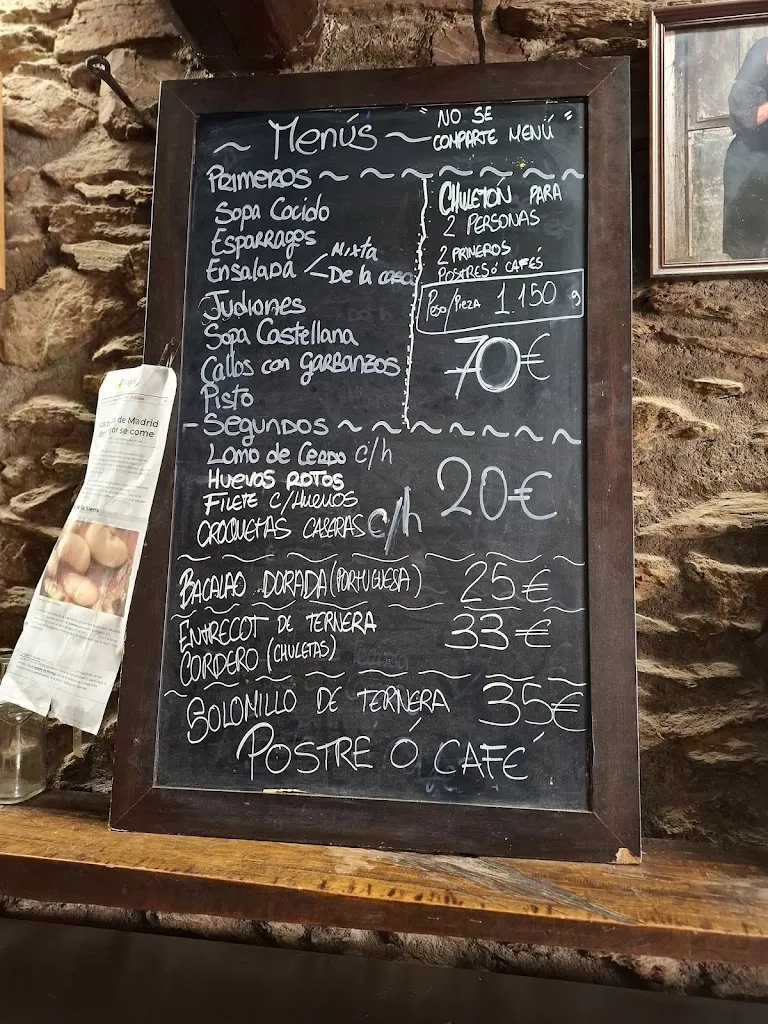 ~ Menús ~
"NO SE
COMPARTE MENÚ"
PRIMEROS
Sopa Cocido
Esparragos
Ensalada
Mixta
De la casa
Judiones
Sopa Castellana
Callos con garbanzos
Pisto
CHULETON PARA
2 PERSONAS
2 PRIMEROS
POSTRES Ó CAFÉS
Peso/Pieza 1.150 g
70€
- Segundos
Lomo de Cerdo c/h
HUEVOS ROTOS
FILETE C/HUEVOS
CROQUETAS CASERAS c/h
20€
BACALAO DORADA (PORTUGUESA) 25€
ENTRECOT DE TERNERA
CORDERO (CHULETAS)
33€
SOLOMILLO DE TERNERA 35€
POSTRE Ó CAFÉ
de Madrid
se come